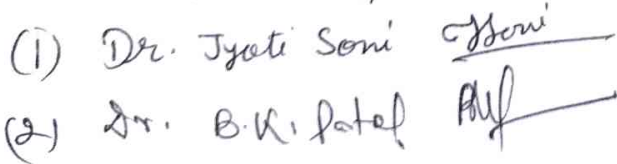 (1) Dr. Jyoti Soni JSoni
(2) Dr. B.K. Patel